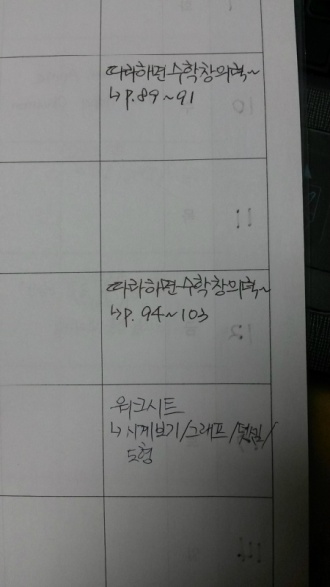 따라하면수학창의력~
↳p.89~91
따라하면수학창의력~
↳p. 94~103
워크시트
↳시계보기/그래프/덧셈/
도형